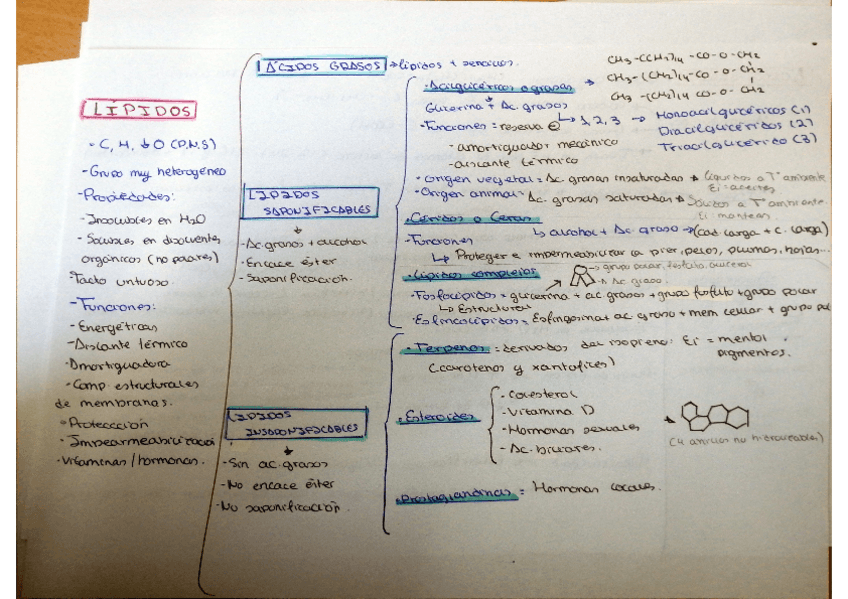 LÍPIDOS
- C, H, ↓O (P,N,S)
- Grupo muy heterogéneo
- Propiedades:
- Insolubles en H2O
- Solubles en disolventes
orgánicos (no polares)
- Tacto untuoso.
- Funciones:
- Energéticas
- Aislante térmico
- Amortiguadora
- Comp. estructurales
de membranas.
- Protección
- Impearmeabilización
- Vitaminas / hormonas.
ÁCIDOS GRASOS → lípidos + sencillos.
LÍPIDOS
SAPONIFICABLES
- Ac. grasos + alcohol
- Enlace éster
- Saponificación.
- Acilglicéridos o grasas →
CH3 -(CH2)14 - CO - O - CH2
CH3 - (CH2)14 - CO - O - CH2
CH3 - (CH2)14 CO - O - CH2
Glicerina + Ac. grasos
↳ 1, 2, 3 → Monoacilglicéridos (1)
Diacilglicéridos (2)
Triacilglicérido (3)
- Funciones = reserva E
- amortiguador mecánico
- aislante térmico
- Origen vegetal = Ac. grasas insaturadas → Líquidos a Tª ambiente
Ej: aceites
- Origen animal = Ac. grasas saturadas → Sólidos a Tª ambiente
Ej: mantecas
- Céridos o Ceras
↳ alcohol + Ac graso → (cad. larga + c. larga)
- Funciones
↳ Proteger e impermeabilizar la piel, pelos, plumas, hojas...
- Lípidos complejos
→ grupo polar, fosfato, glicerol
→ Ac. graso.
- Fosfolípidos = glicerina + ac grasos + grupo fosfato + grupo polar
↳ Estructural
- Esfingolípidos = Esfingosina + ac graso + mem celular + grupo
LÍPIDOS
INSAPONIFICABLES
- Sin ac. grasos
- No enlace éster
- No saponificación.
- Terpenos = derivados del isopreno. Ej = mentol,
pigmentos.
(carotenos y xantofilas)
- Esteroides
- Colesterol
- Vitamina D
- Hormonas sexuales
- Ac. biliares.
(4 anillos no hidrolizables)
- Prostaglandinas = Hormonas locales.